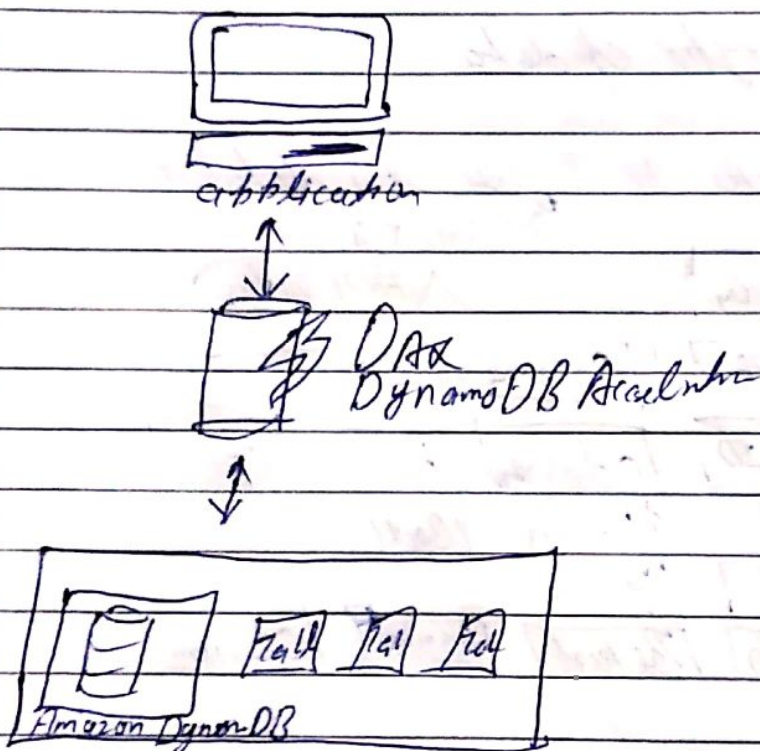 application
DAX
DynamoDB Accelerator
Table Table Table
Amazon DynamoDB